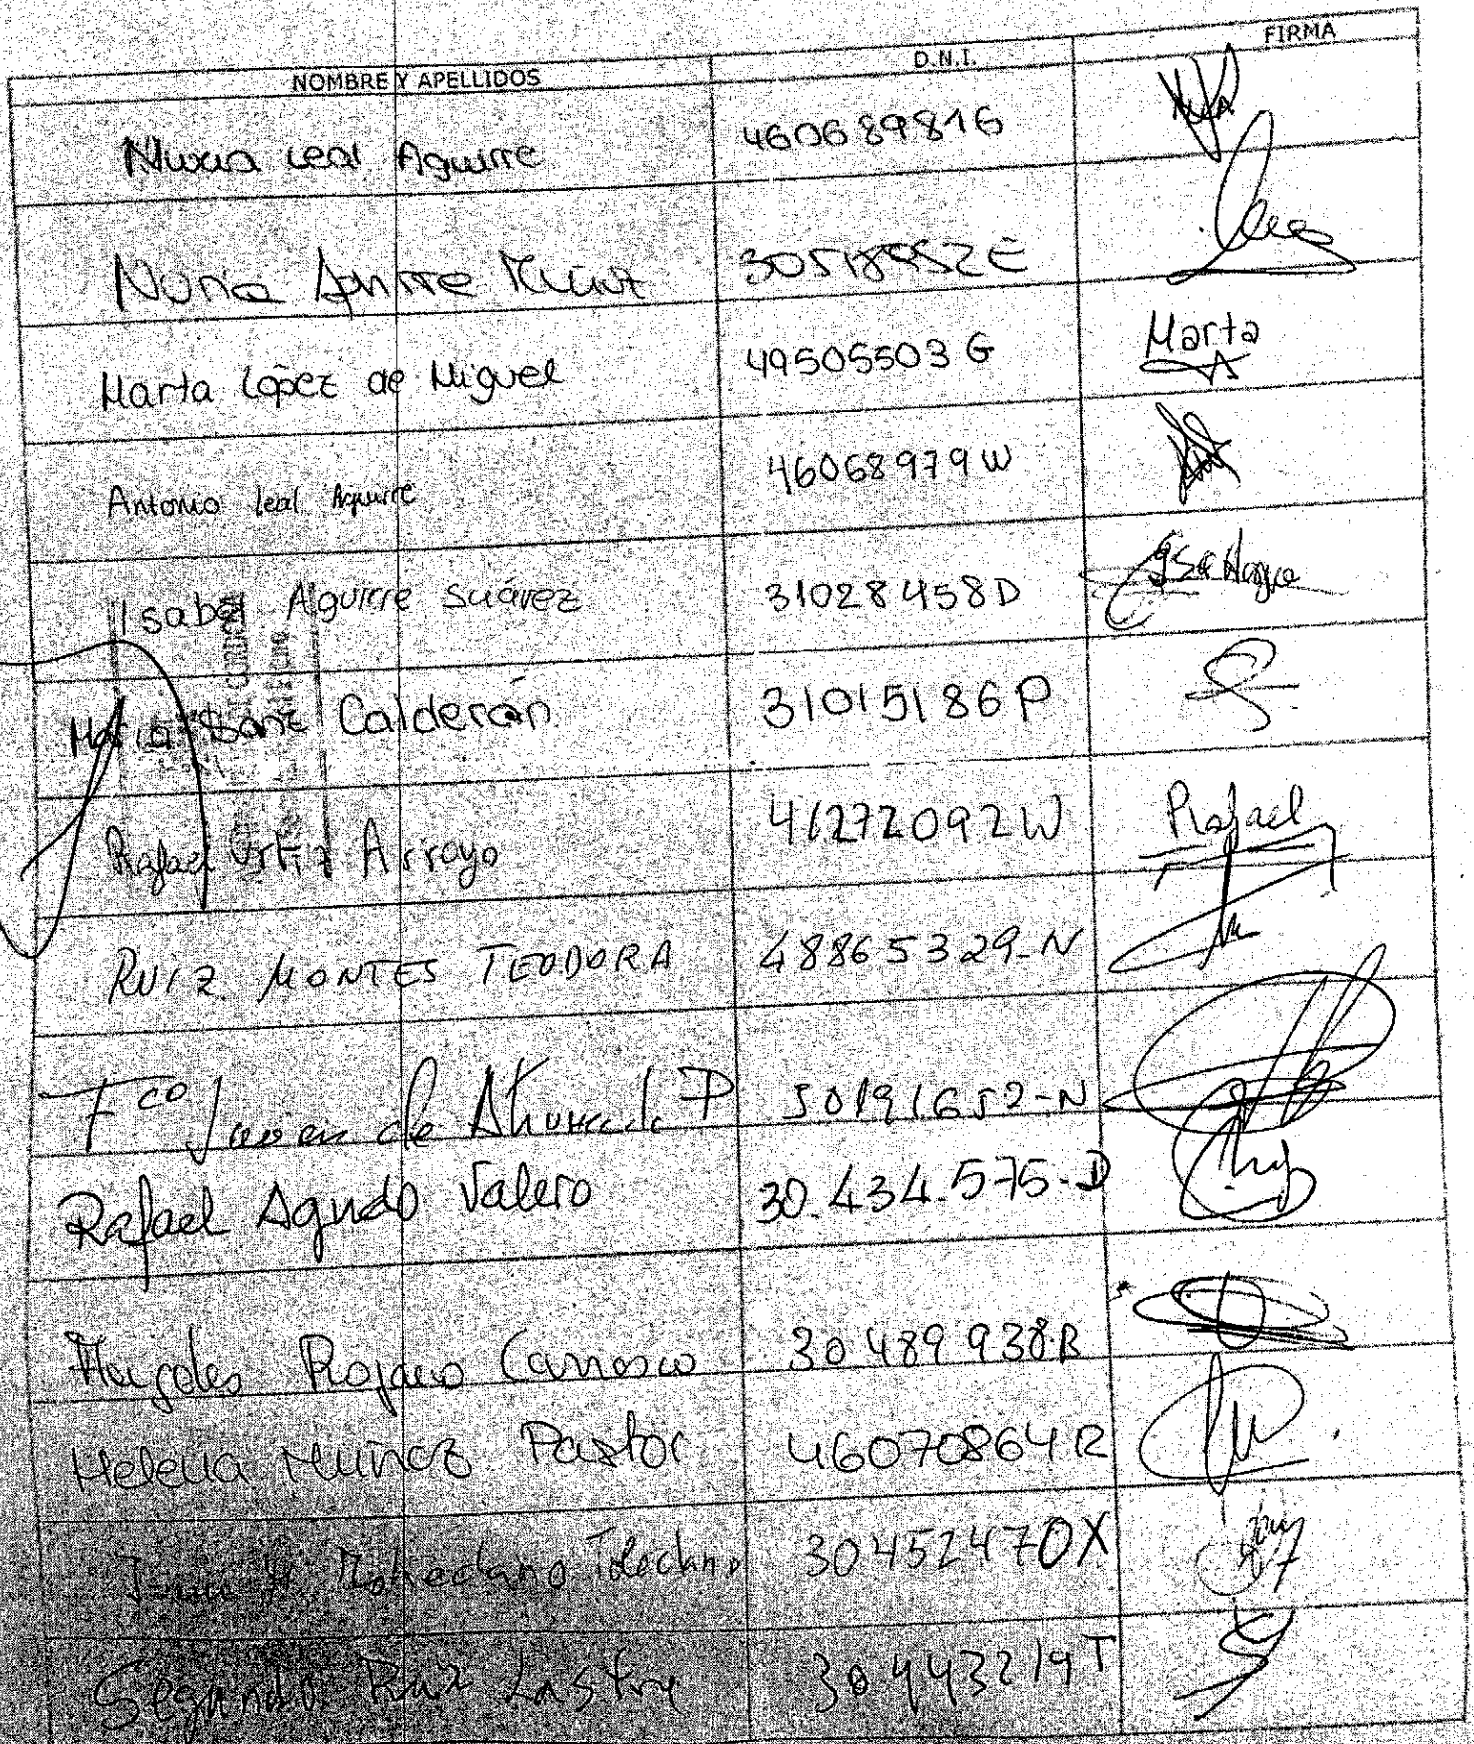 NOMBRE Y APELLIDOS D.N.I. FIRMA
Nuria Leal Aguirre 46068981G
Nuria Aguirre Muñoz 30518952E
Marta López de Miguel 49505503G Marta
Antonio Leal Aguirre 46068979W
Isabel Aguirre Suárez 31028458D
María Sanz Calderón 31015186P
Rafael Ortiz Arroyo 41272092W Rafael
RUIZ MONTES TEODORA 48865329-N
Fco Javier de Ahumada P
Rafael Agudo Valero 30.434.575-D
Rojano Carrasco 30489938R
Helena Muñoz Pastor 46070864R
Mohedano Toledano 30452470X
Segundo Ruiz Lastre 30443219T